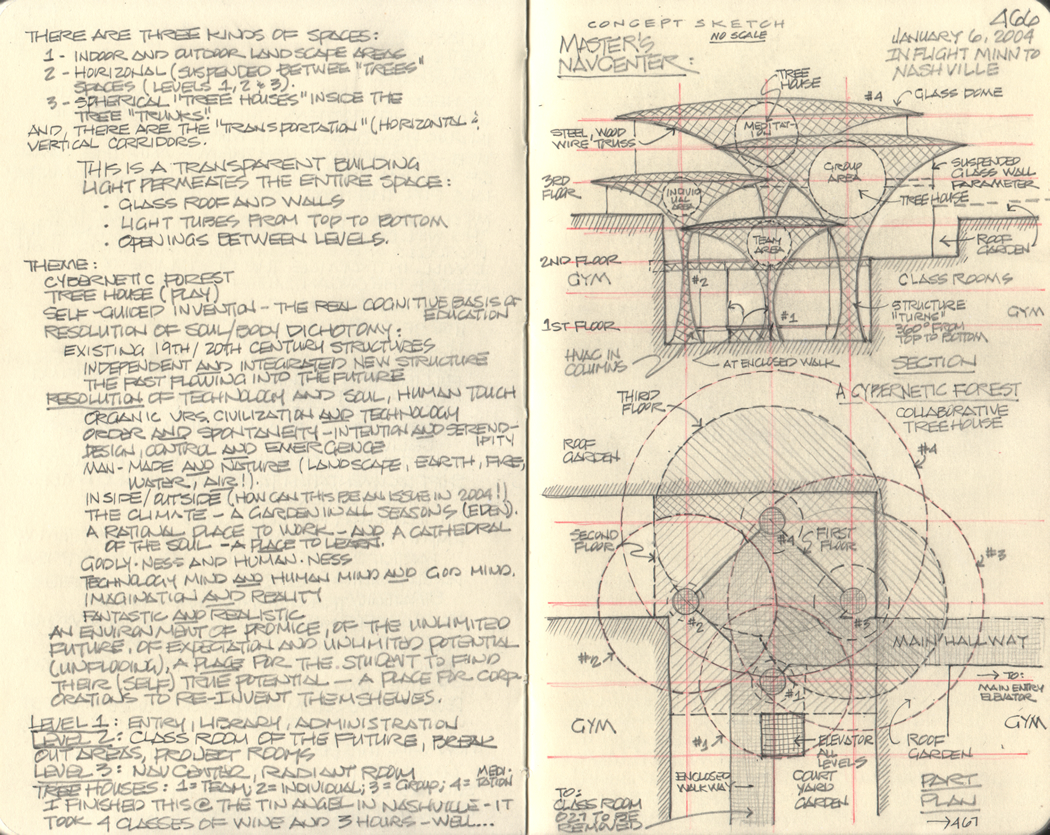 THERE ARE THREE KINDS OF SPACES:
1 - INDOOR AND OUTDOOR LANDSCAPE AREAS
2 - HORIZONAL (SUSPENDED BETWEE "TREES"
SPACES (LEVELS 1, 2 & 3).
3 - SPHERICAL "TREE HOUSES" INSIDE THE
TREE "TRUNKS".
AND, THERE ARE THE "TRANSPORTATION" (HORIZONTAL &
VERTICAL CORRIDORS.
THIS IS A TRANSPARENT BUILDING
LIGHT PERMEATES THE ENTIRE SPACE:
• GLASS ROOF AND WALLS
• LIGHT TUBES FROM TOP TO BOTTOM
• OPENINGS BETWEEN LEVELS.
THEME:
CYBERNETIC FOREST
TREE HOUSE (PLAY)
SELF-GUIDED INVENTION - THE REAL COGNITIVE BASIS OF
EDUCATION
RESOLUTION OF SOUL/BODY DICHOTOMY:
EXISTING 19TH/20TH CENTURY STRUCTURES
INDEPENDENT AND INTEGRATED NEW STRUCTURE
THE PAST FLOWING INTO THE FUTURE
RESOLUTION OF TECHNOLOGY AND SOUL, HUMAN TOUCH
ORGANIC VRS. CIVILIZATION AND TECHNOLOGY
ORDER AND SPONTANEITY - INTENTION AND SEREND-
IPITY
DESIGN, CONTROL AND EMERGENCE
MAN-MADE AND NATURE (LANDSCAPE, EARTH, FIRE,
WATER, AIR!).
INSIDE/OUTSIDE (HOW CAN THIS BE AN ISSUE IN 2004!)
THE CLIMATE - A GARDEN IN ALL SEASONS (EDEN).
A RATIONAL PLACE TO WORK - AND A CATHEDRAL
OF THE SOUL - A PLACE TO LEARN.
GODLY-NESS AND HUMAN-NESS
TECHNOLOGY MIND AND HUMAN MIND AND GOD MIND.
IMAGINATION AND REALITY
FANTASTIC AND REALISTIC
AN ENVIRONMENT OF PROMICE, OF THE UNLIMITED
FUTURE, OF EXPECTATION AND UNLIMITED POTENTIAL
(UNFLODING), A PLACE FOR THE STUDENT TO FIND
THEIR (SELF) TRUE POTENTIAL - A PLACE FOR CORP-
ORATIONS TO RE-INVENT THEMSHELVES.
LEVEL 1: ENTRY, LIBRARY, ADMINISTRATION
LEVEL 2: CLASS ROOM OF THE FUTURE, BREAK
OUT AREAS, PROJECT ROOMS
LEVEL 3: NAV CENTER, RADIANT ROOM
TREE HOUSES: 1 = TEAM; 2 = INDIVIDUAL; 3 = GROUP; 4 = MEDI-
TATION
I FINISHED THIS @ THE TIN ANGEL IN NASHVILLE - IT
TOOK 4 CLASSES OF WINE AND 3 HOURS - WELL...
466
CONCEPT SKETCH
NO SCALE
JANUARY 6, 2004
IN FLIGHT MINN TO
NASHVILLE
MASTER'S
NAVCENTER:
TREE
HOUSE
#4
GLASS DOME
STEEL, WOOD
WIRE TRUSS
MEDITAT-
ION
GROUP
AREA
SUSPENDED
GLASS WALL
PARAMETER
TREE HOUSE
3RD
FLOOR
INDIVID
UAL
AREA
TEAM
AREA
ROOF
GARDEN
2ND FLOOR
GYM
#2
#1
CLASS ROOMS
GYM
STRUCTURE
"TURNS"
360° FROM
TOP TO BOTTOM
1ST FLOOR
HVAC IN
COLUMNS
AT ENCLOSED WALK
SECTION
A CYBERNETIC FOREST
COLLABORATIVE
TREE HOUSE
THIRD
FLOOR
ROOF
GARDEN
#4
SECOND
FLOOR
#4
FIRST
FLOOR
#3
#2
#3
MAIN HALLWAY
#2
#1
TO:
MAIN ENTRY
ELEVATOR
GYM
#1
ELEVATOR
ALL
LEVELS
ROOF
GARDEN
GYM
ENCLOSED
WALKWAY
COURT
YARD
GARDEN
PART
PLAN
→467
TO:
CLASS ROOM
027 TO BE
REMOVED